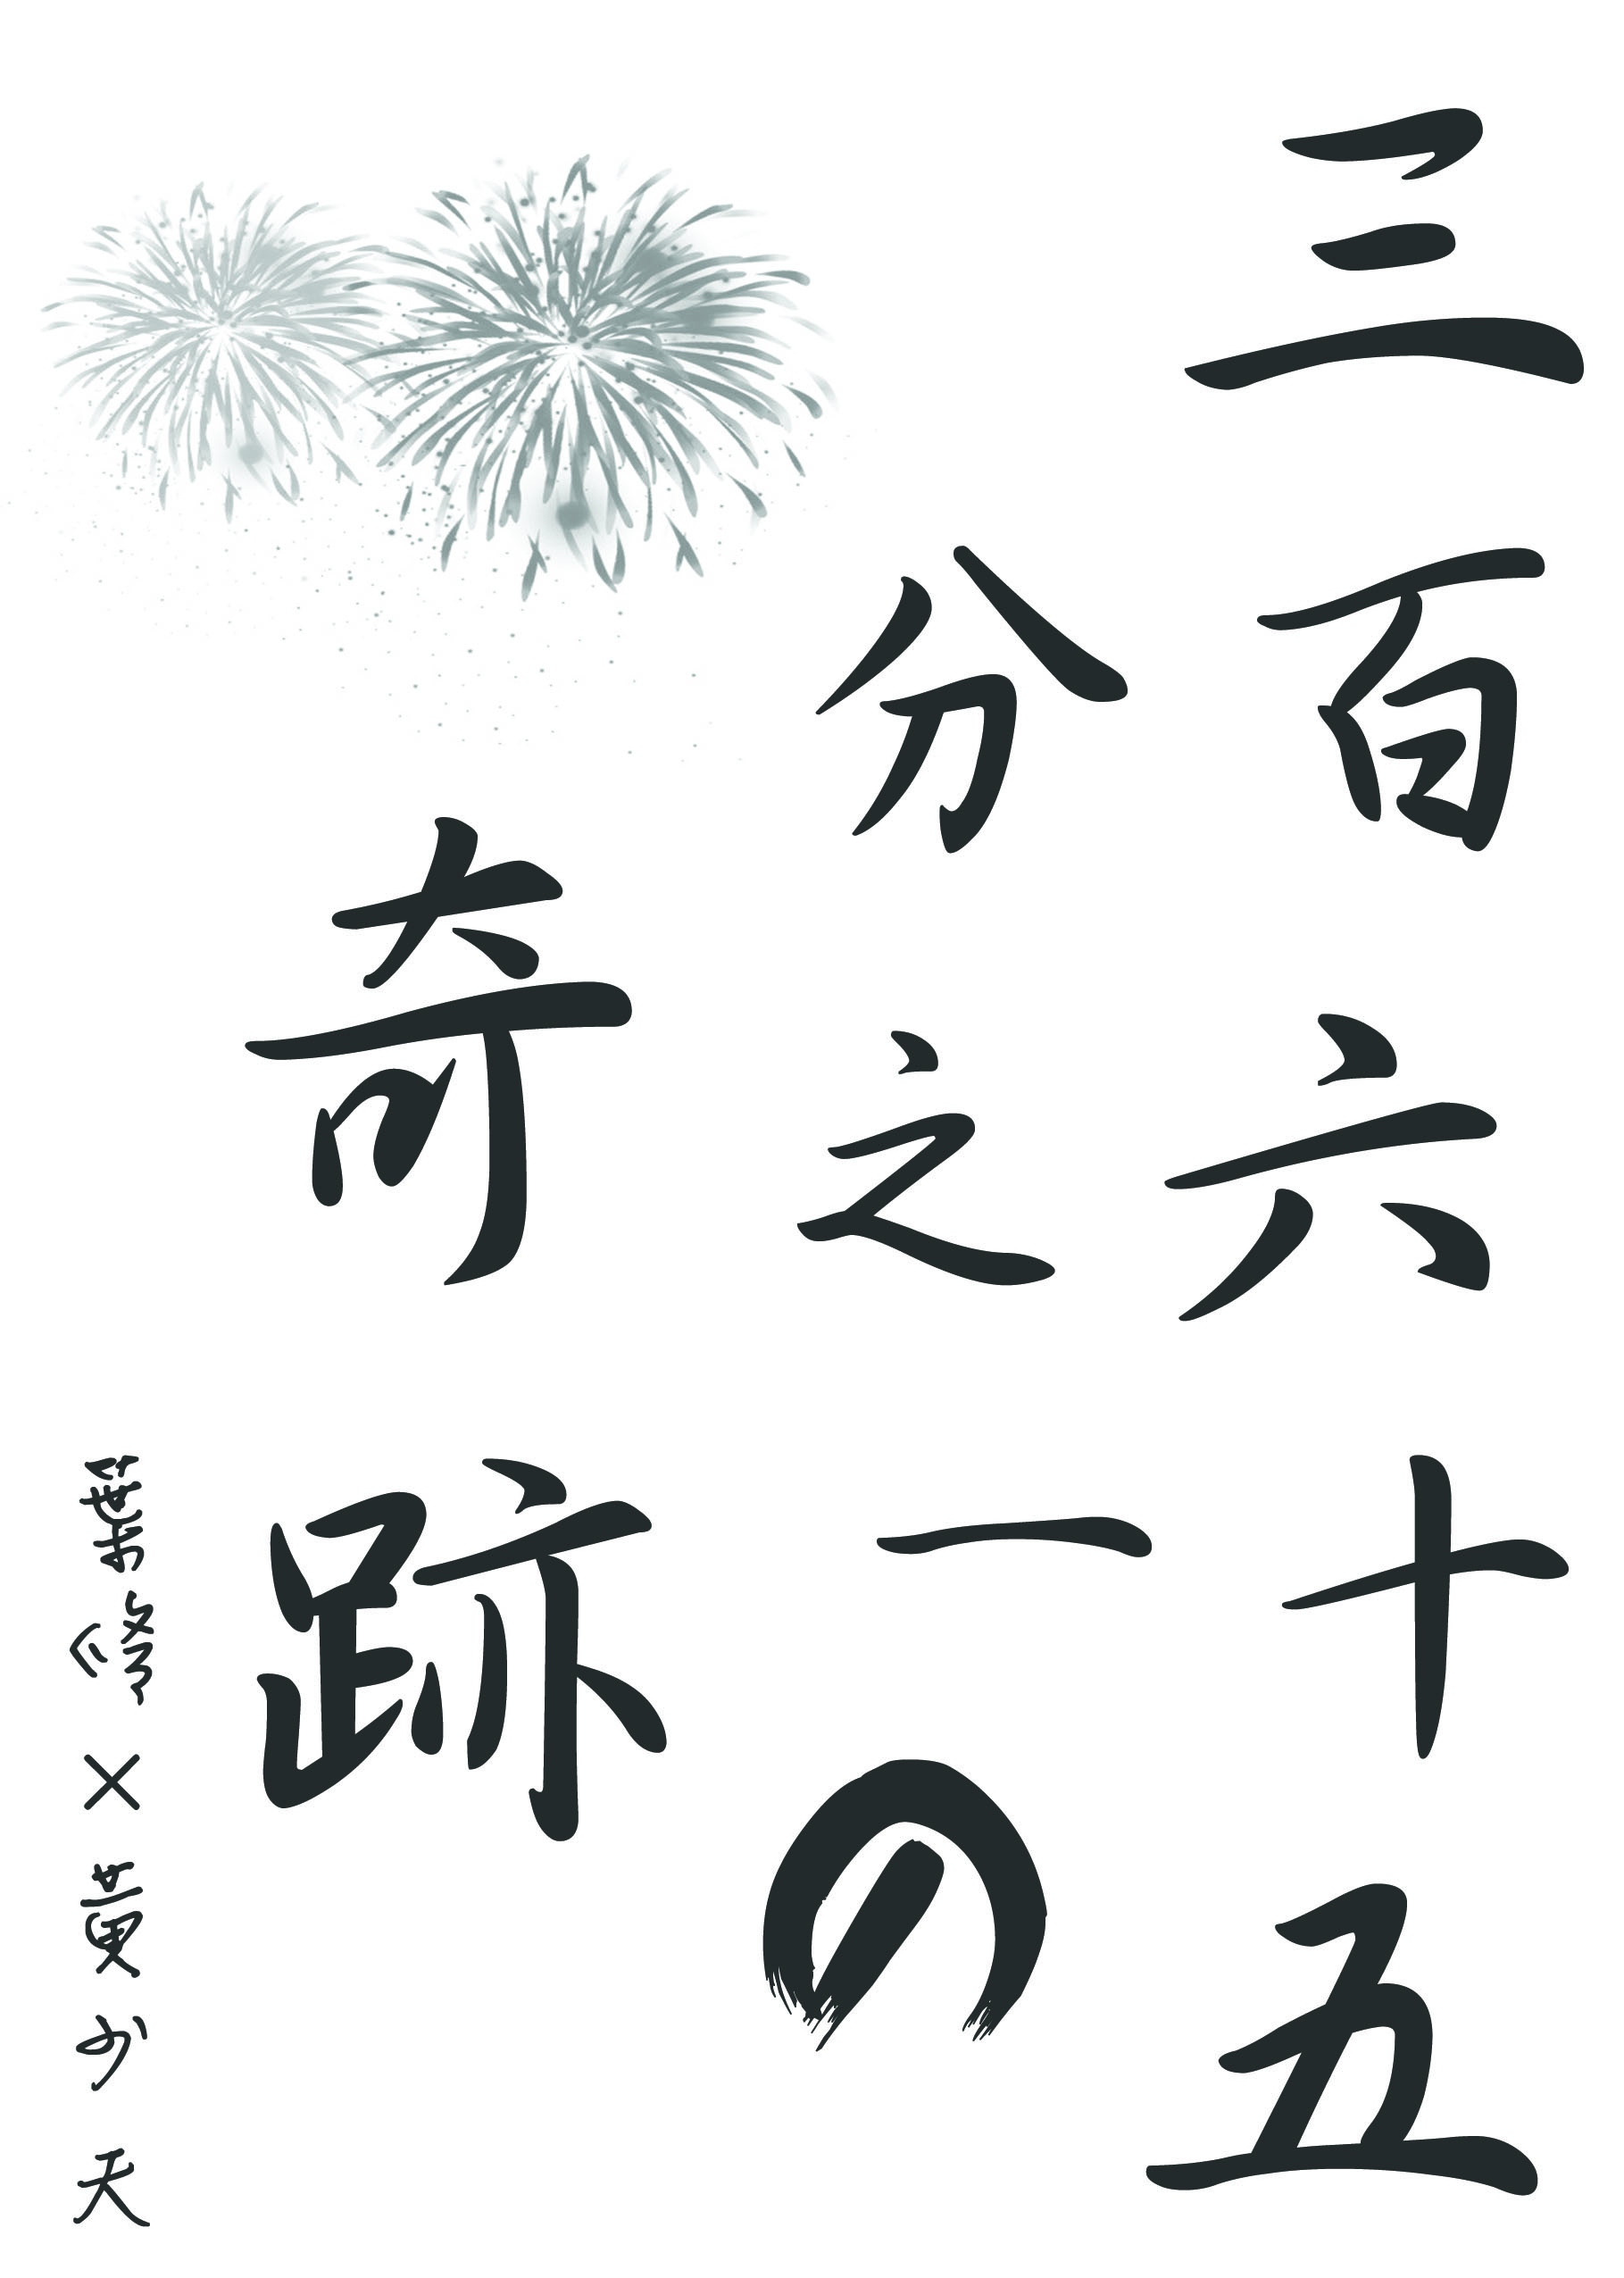 三百六十五
分之一の
奇跡
葉修×黃少天